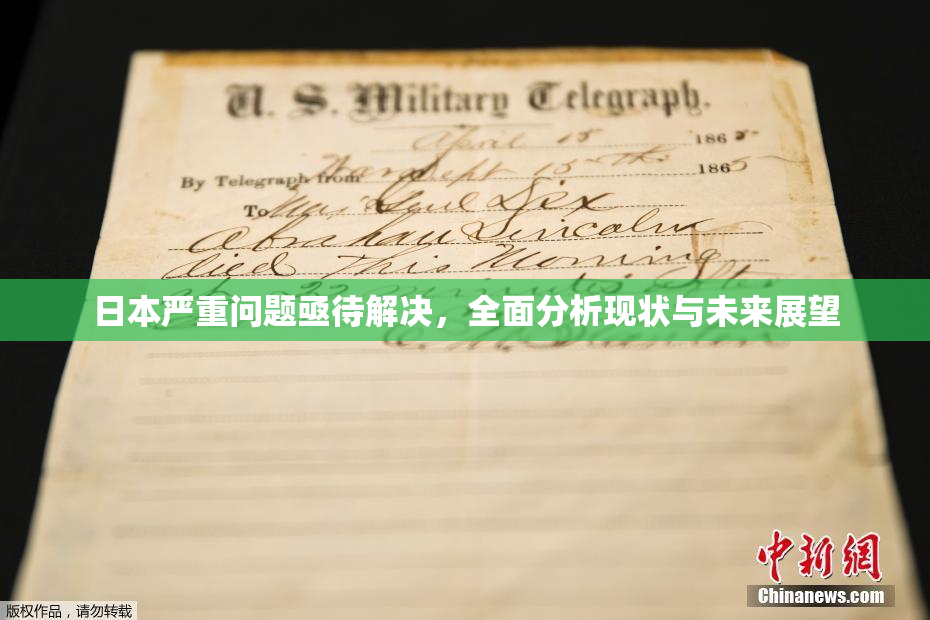 U. S. Military Telegraph.
April 15 1865
By Telegraph from War Dept 15th 1865
To Maj Genl Dix
Abraham Lincoln
died This Morning
at 22 minutes after
日本严重问题亟待解决，全面分析现状与未来展望
E. M. Stanton
中新网
Chinanews.com
版权作品，请勿转载